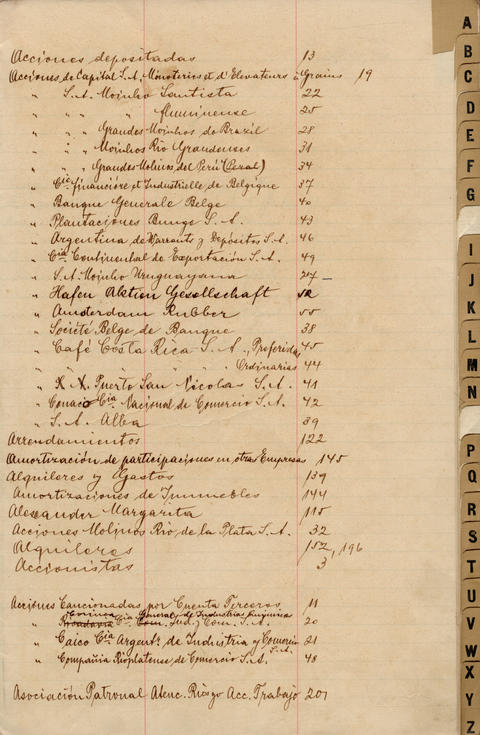 Acciones depositadas 13
Acciones de Capital S.A. Minoteries et d'Elevateurs à Grains 19
" S.A. Moinho Santista 22
" " " Fluminense 25
" " Grandes Moinhos do Brazil 28
" " Moinhos Rio Grandenses 31
" " Grandes Molinos del Perú (Cezal) 34
" Cie. financière et Industrielle de Belgique 37
" Banque Generale Belge 40
" Plantaciones Bunge S.A. 43
" Argentina de Warrants y Depósitos S.A. 46
" Cía Continental de Exportación S.A. 49
" S.A. Moinho Uruguayana
" Hafen Aktien Gesellschaft 52
" Amsterdam Rubber 55
" Société Belge de Banque 38
" Café Costa Rica S.A., Preferidas 45
" " " " " Ordinarias 44
" K.N. Puerto San Nicolas S.A. 41
" Conaco Cía Nacional de Comercio S.A. 42
" S.A. Alba 39
Arrendamientos 122
Amortización de participaciones en otras Empresas 145
Alquileres y Gastos 139
Amortizaciones de Inmuebles 144
Alexander Margarita 115
Acciones Molinos Río de la Plata S.A. 32
Alquileres 152, 196
Accionistas 3
Acciones Caucionadas por Cuenta Terceros 11
" Cía General de Industrias Químicas
Ind. y Com. S.A. 20
" Caico Cía Argent. de Industria y Comercio S.A. 21
" Compañia Rioplatense de Comercio S.A. 48
Asociación Patronal Atenc. Riesgo Acc. Trabajo 201
A
B
C
D
E
F
G
I
J
K
L
M
N
P
Q
R
S
T
U
V
W
X
Y
Z